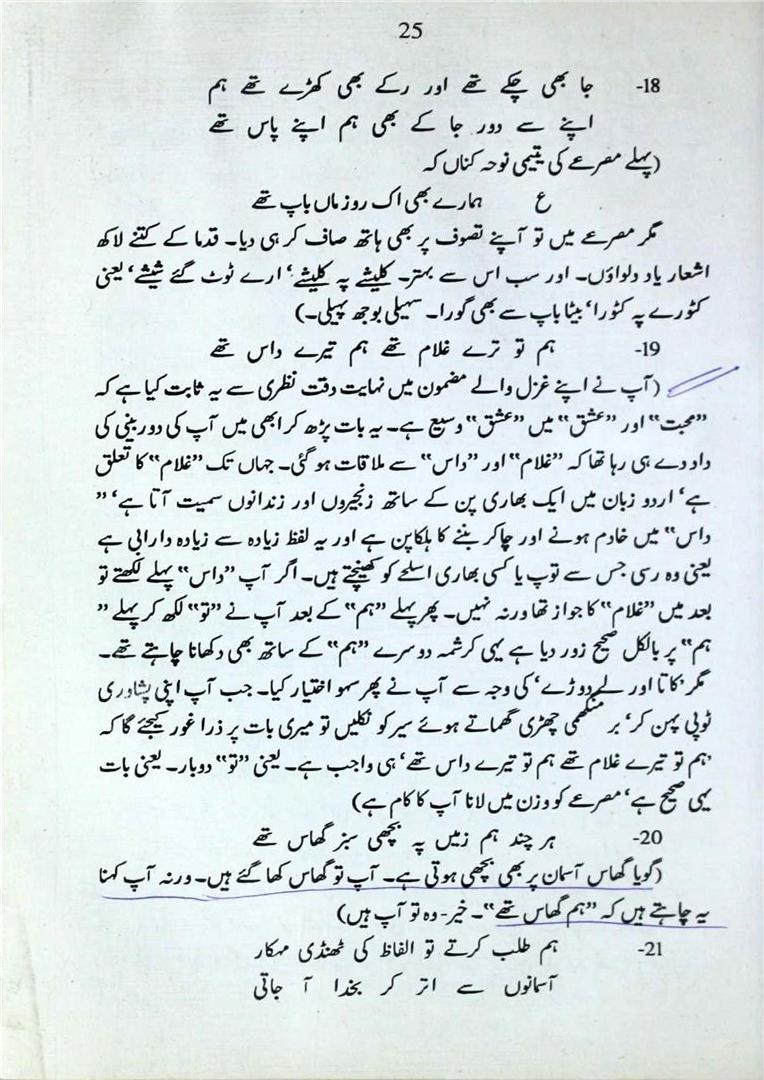 25
18- جا بھی چکے تھے اور رکے بھی کھڑے تھے ہم
اپنے سے دور جا کے بھی ہم اپنے پاس تھے
(پہلے مصرعے کی یتیمی نوحہ کناں کہ
ع ہمارے بھی اک روز ماں باپ تھے
مگر مصرعے میں تو آپنے تصوف پر بھی ہاتھ صاف کر ہی دیا۔ قدما کے کتنے لاکھ
اشعار یاد دلواؤں۔ اور سب اس سے بہتر۔ کلیشے پہ کلیشے‘ ارے ٹوٹ گئے شیشے‘ یعنی
کٹورے پہ کٹورا‘ بیٹا باپ سے بھی گورا۔ سہیلی بوجھ پہیلی۔)
19- ہم تو ترے غلام تھے ہم تیرے داس تھے
(آپ نے اپنے غزل والے مضمون میں نہایت دقت نظری سے یہ ثابت کیا ہے کہ
”محبت“ اور ”عشق“ میں ”عشق“ وسیع ہے۔ یہ بات پڑھ کر ابھی میں آپ کی دوربینی کی
داد دے ہی رہا تھا کہ ”غلام“ اور ”داس“ سے ملاقات ہو گئی۔ جہاں تک ”غلام“ کا تعلق
ہے‘ اردو زبان میں ایک بھاری پن کے ساتھ زنجیروں اور زندانوں سمیت آتا ہے‘ ”
داس“ میں خادم ہونے اور چاکر بننے کا ہلکاپن ہے اور یہ لفظ زیادہ سے زیادہ دارابی ہے
یعنی وہ رسی جس سے توپ یا کسی بھاری اسلحے کو کھینچتے ہیں۔ اگر آپ ”داس“ پہلے لکھتے تو
بعد میں ”غلام“ کا جواز تھا ورنہ نہیں۔ پھر پہلے ”ہم“ کے بعد آپ نے ”تو“ لکھ کر پہلے ”
ہم“ پر بالکل صحیح زور دیا ہے یہی کرشمہ دوسرے ”ہم“ کے ساتھ بھی دکھانا چاہتے تھے۔
مگر ’کاتا اور لے دوڑے‘ کی وجہ سے آپ نے پھر سہو اختیار کیا۔ جب آپ اپنی پشاوری
ٹوپی پہن کر‘ بر منگھمی چھڑی گھماتے ہوئے سیر کو نکلیں تو میری بات پر ذرا غور کیجئے گا کہ
’ہم تو تیرے غلام تھے ہم تو تیرے داس تھے‘ ہی واجب ہے۔ یعنی ”تو“ دوبار۔ یعنی بات
یہی صحیح ہے‘ مصرعے کو وزن میں لانا آپ کا کام ہے)
20- ہر چند ہم زمیں پہ بچھی سبز گھاس تھے
(گویا گھاس آسمان پر بھی بچھی ہوتی ہے۔ آپ تو گھاس کھا گئے ہیں۔ ورنہ آپ کہنا
یہ چاہتے ہیں کہ ”ہم گھاس تھے“۔ خیر- وہ تو آپ ہیں)
21- ہم طلب کرتے تو الفاظ کی ٹھنڈی مہکار
آسمانوں سے اتر کر بخدا آ جاتی